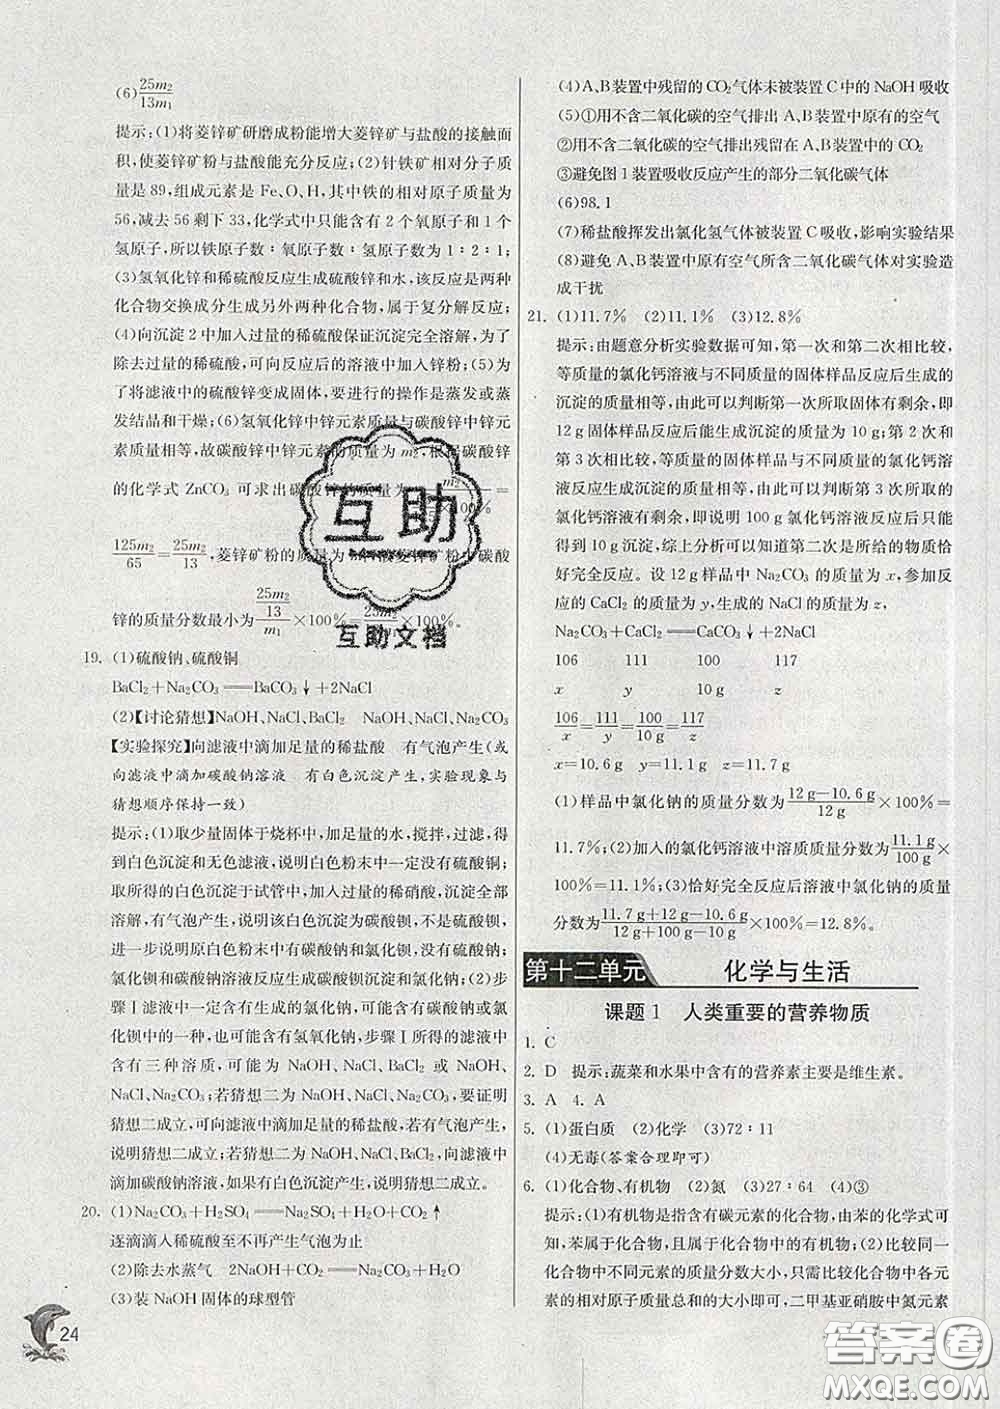 (6)25m₂/13m₁
提示:(1)将菱锌矿研磨成粉能增大菱锌矿与盐酸的接触面
积,使菱锌矿粉与盐酸能充分反应;(2)针铁矿相对分子质
量是 89,组成元素是 Fe、O、H,其中铁的相对原子质量为
56,减去 56 剩下 33,化学式中只能含有 2 个氧原子和 1 个
氢原子,所以铁原子数∶氧原子数∶氢原子数为 1∶2∶1;
(3)氢氧化锌和稀硫酸反应生成硫酸锌和水,该反应是两种
化合物交换成分生成另外两种化合物,属于复分解反应;
(4)向沉淀 2 中加入过量的稀硫酸保证沉淀完全溶解,为了
除去过量的稀硫酸,可向反应后的溶液中加入锌粉;(5)为
了将滤液中的硫酸锌变成固体,要进行的操作是蒸发或蒸
发结晶和干燥;(6)氢氧化锌中锌元素质量与碳酸锌中锌元
素质量相等,故碳酸锌中锌元素的质量为 m₂,根据碳酸锌
的化学式 ZnCO₃ 可求出碳酸锌的质量为 =
125m₂/65=25m₂/13,菱锌矿粉的质量为 菱锌矿粉中碳酸
锌的质量分数最小为 (25m₂/13)/m₁×100%=25m₂/ ×100%。
19. (1)硫酸钠、硫酸铜
BaCl₂+Na₂CO₃══BaCO₃↓+2NaCl
(2)【讨论猜想】NaOH、NaCl、BaCl₂ NaOH、NaCl、Na₂CO₃
【实验探究】向滤液中滴加足量的稀盐酸 有气泡产生(或
向滤液中滴加碳酸钠溶液 有白色沉淀产生,实验现象与
猜想顺序保持一致)
提示:(1)取少量固体于烧杯中,加足量的水,搅拌,过滤,得
到白色沉淀和无色滤液,说明白色粉末中一定没有硫酸铜;
取所得的白色沉淀于试管中,加入过量的稀硝酸,沉淀全部
溶解,有气泡产生,说明该白色沉淀为碳酸钡,不是硫酸钡,
进一步说明原白色粉末中有碳酸钠和氯化钡,没有硫酸钠;
氯化钡和碳酸钠溶液反应生成碳酸钡沉淀和氯化钠;(2)步
骤Ⅰ滤液中一定含有生成的氯化钠,可能含有碳酸钠或氯
化钡中的一种,也可能有氢氧化钠,步骤Ⅰ所得的滤液中
含有三种溶质,可能为 NaOH、NaCl、BaCl₂ 或 NaOH、
NaCl、Na₂CO₃;若猜想二为 NaOH、NaCl、Na₂CO₃,要证明
猜想二成立,可向滤液中滴加足量的稀盐酸,若有气泡产生,
说明猜想二成立;若猜想二为 NaOH、NaCl、BaCl₂,向滤液中
滴加碳酸钠溶液,如果有白色沉淀产生,说明猜想二成立。
20. (1)Na₂CO₃+H₂SO₄══Na₂SO₄+H₂O+CO₂↑
逐滴滴入稀硫酸至不再产生气泡为止
(2)除去水蒸气 2NaOH+CO₂══Na₂CO₃+H₂O
(3)装 NaOH 固体的球型管
24
(4)A、B 装置中残留的 CO₂ 气体未被装置 C 中的 NaOH 吸收
(5)①用不含二氧化碳的空气排出 A、B 装置中原有的空气
②用不含二氧化碳的空气排出残留在 A、B 装置中的 CO₂
③避免图 1 装置吸收反应产生的部分二氧化碳气体
(6)98.1
(7)稀盐酸挥发出氯化氢气体被装置 C 吸收,影响实验结果
(8)避免 A、B 装置中原有空气所含二氧化碳气体对实验造
成干扰
21. (1)11.7% (2)11.1% (3)12.8%
提示:由题意分析实验数据可知,第一次和第二次相比较,
等质量的氯化钙溶液与不同质量的固体样品反应后生成的
沉淀的质量相等,由此可以判断第一次所取固体有剩余,即
12 g 固体样品反应后能生成沉淀的质量为 10 g;第 2 次和
第 3 次相比较,等质量的固体样品与不同质量的氯化钙溶
液反应生成沉淀的质量相等,可以判断第 3 次所取的
氯化钙溶液有剩余,即说明 100 g 氯化钙溶液反应后只能
得到 10 g 沉淀,综上分析可以知道第二次是所给的物质恰
好完全反应。设 12 g 样品中 Na₂CO₃ 的质量为 x,参加反
应的 CaCl₂ 的质量为 y,生成的 NaCl 的质量为 z,
Na₂CO₃+CaCl₂══CaCO₃↓+2NaCl
106 111 100 117
x y 10 g z
106/x=111/y=100/10 g=117/z
x=10.6 g y=11.1 g z=11.7 g
(1)样品中氯化钠的质量分数为(12 g−10.6 g)/12 g×100%=
11.7%;(2)加入的氯化钙溶液中溶质质量分数为11.1 g/100 g×
100%=11.1%;(3)恰好完全反应后溶液中氯化钠的质量
分数为(11.7 g+12 g−10.6 g)/(12 g+100 g−10 g)×100%=12.8%。
第十二单元 化学与生活
课题 1 人类重要的营养物质
1. C
2. D 提示:蔬菜和水果中含有的营养素主要是维生素。
3. A 4. A
5. (1)蛋白质 (2)化学 (3)72∶11
(4)无毒(答案合理即可)
6. (1)化合物、有机物 (2)氮 (3)27∶64 (4)③
提示:(1)有机物是指含有碳元素的化合物,由苯的化学式可
知,苯属于化合物,且属于化合物中的有机物;(2)比较同一
化合物中不同元素的质量分数大小,只需比较化合物中各元
素的相对原子质量总和的大小即可,二甲基亚硝胺中氮元素
互助
互助文档
答案圈
MXQE.COM